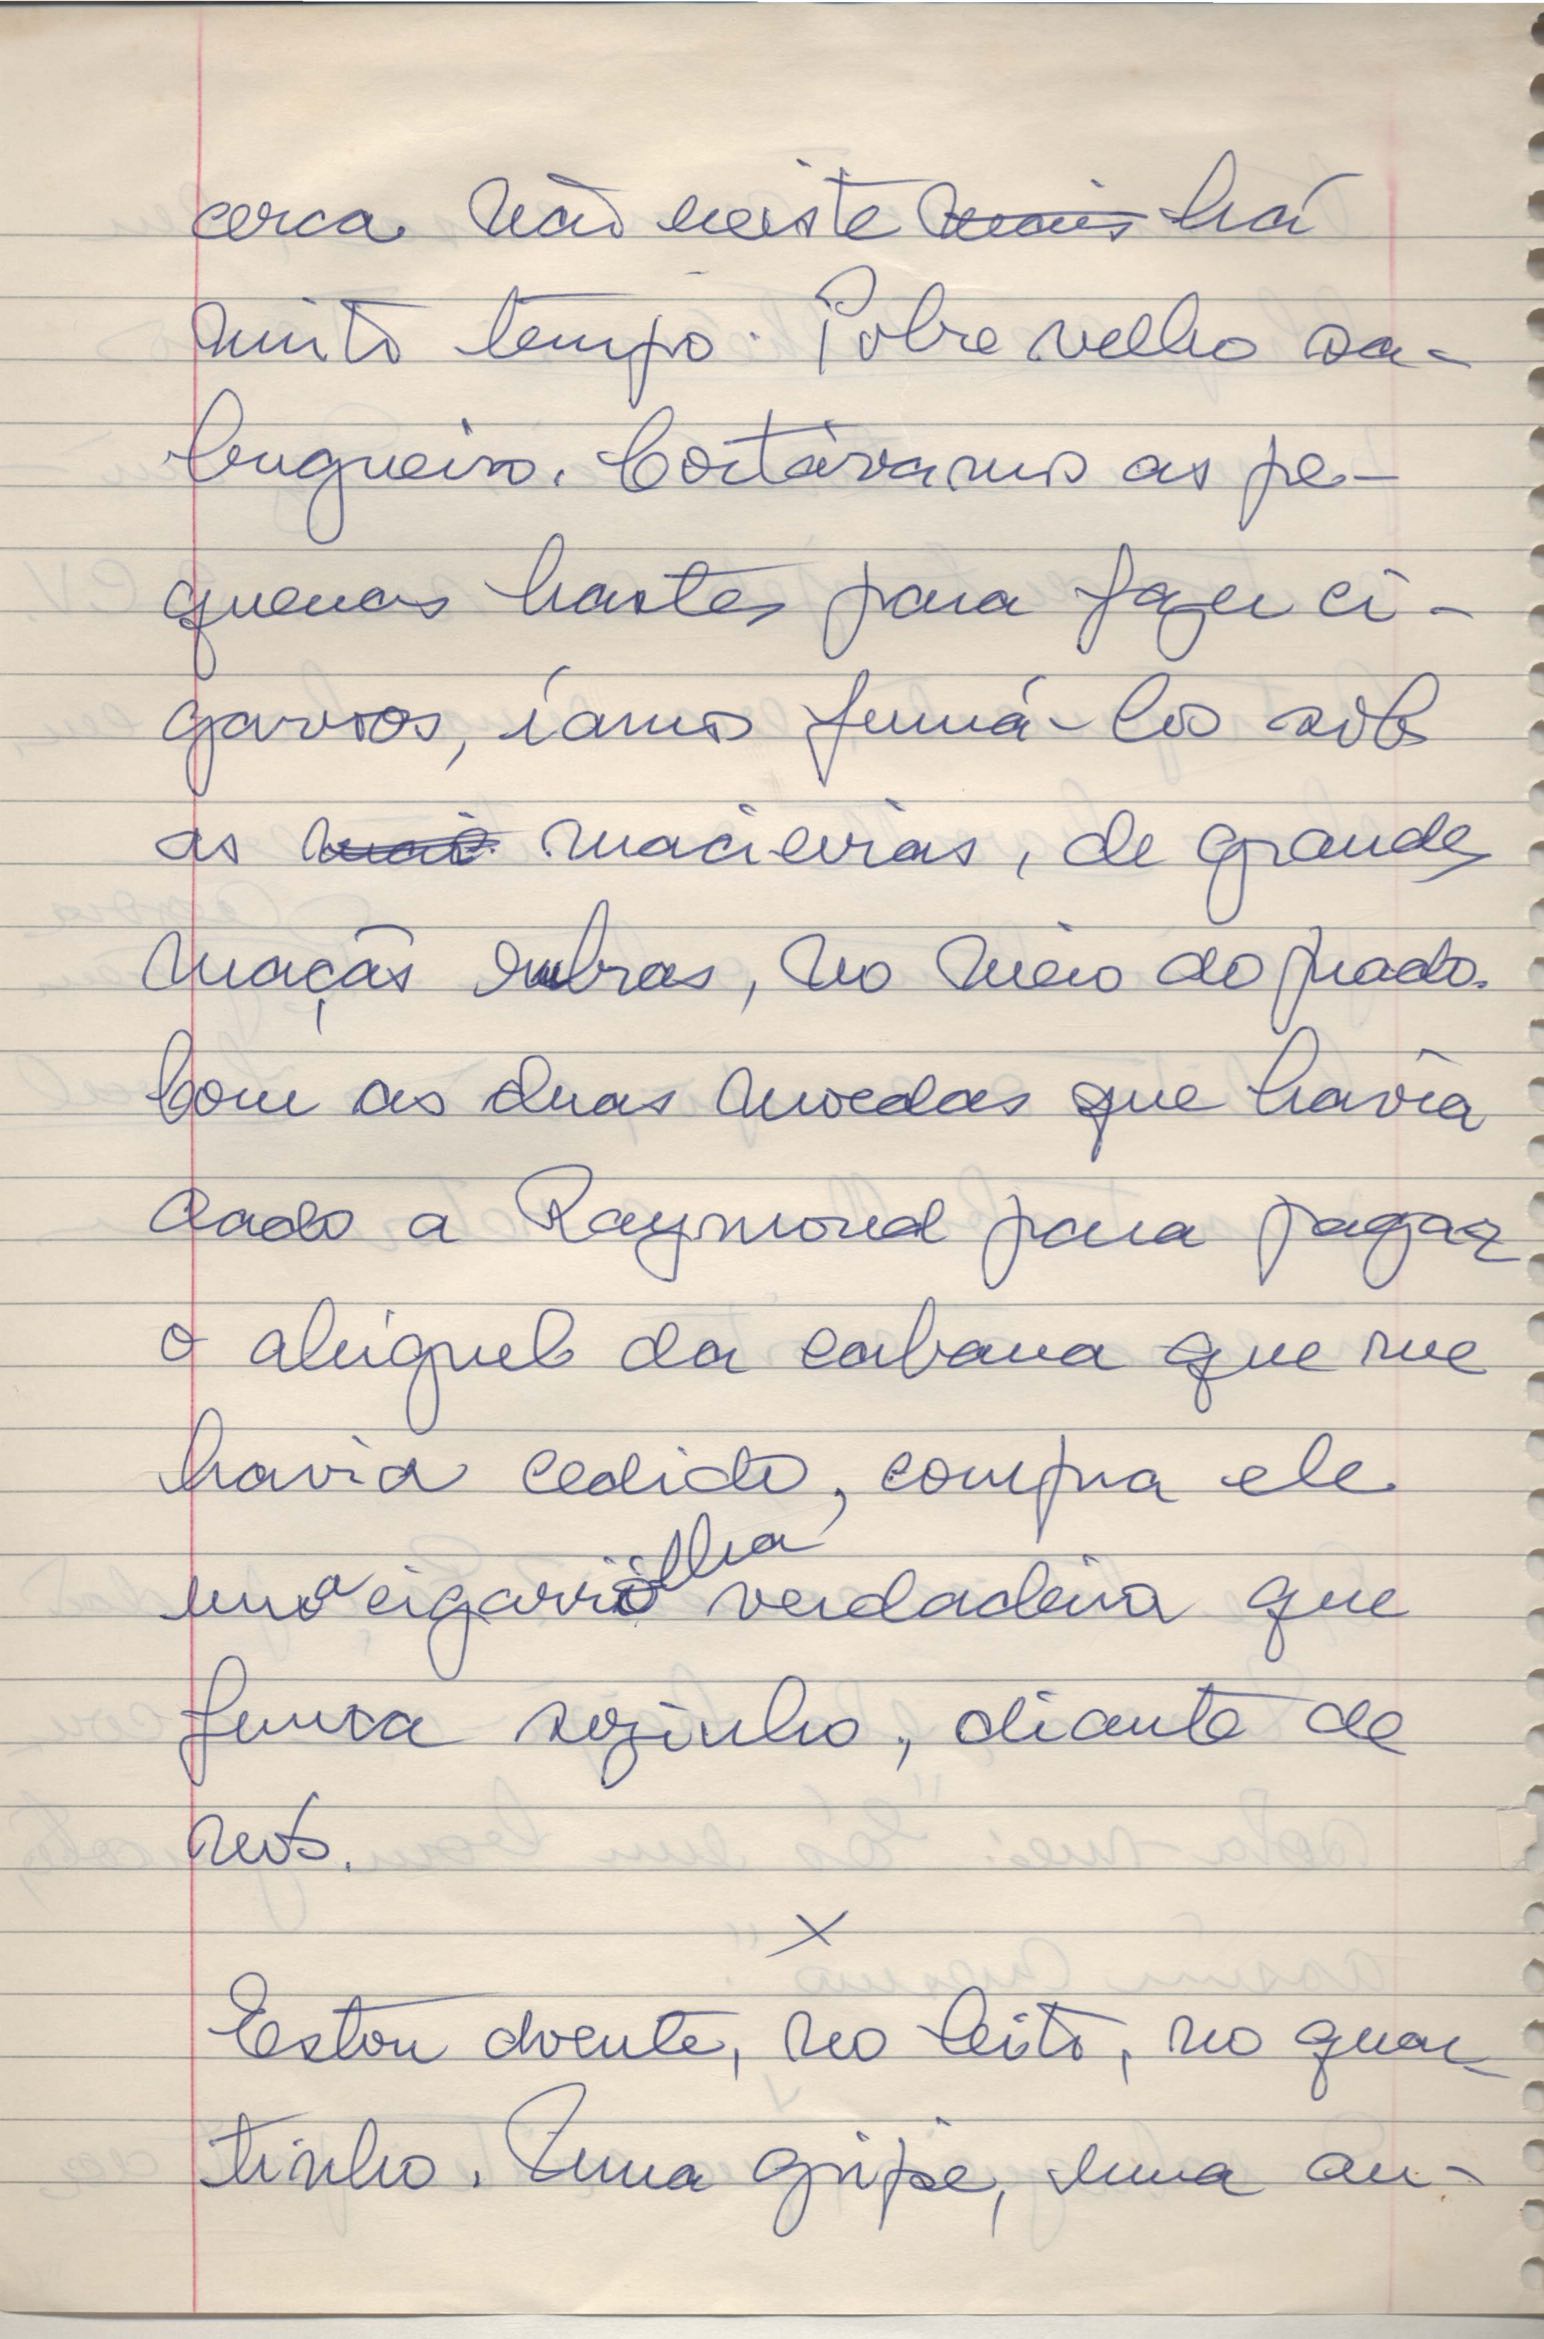 cerca não existe mais há
muito tempo. Pobre velho sa-
bugueiro. Cortávamos as pe-
quenas hastes para fazer ci-
garros, íamos fumá-los sob
as mai macieiras, de grandes
maçãs rubras, no meio do prado.
Com as duas moedas que havia
dado a Raymond para pagar
o aluguel da cabana que me
havia cedido, compra ele
uma cigarrilha verdadeira que
fuma sozinho, diante de
nós.
x
Estou doente, no leito, no quar-
tinho. Uma gripe, uma an-